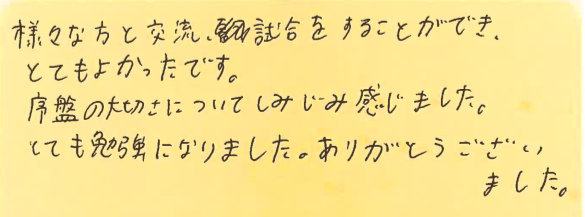 様々な方と交流、試合をすることができ、
とてもよかったです。
序盤の大切さについてしみじみ感じました。
とても勉強になりました。ありがとうござい
ました。